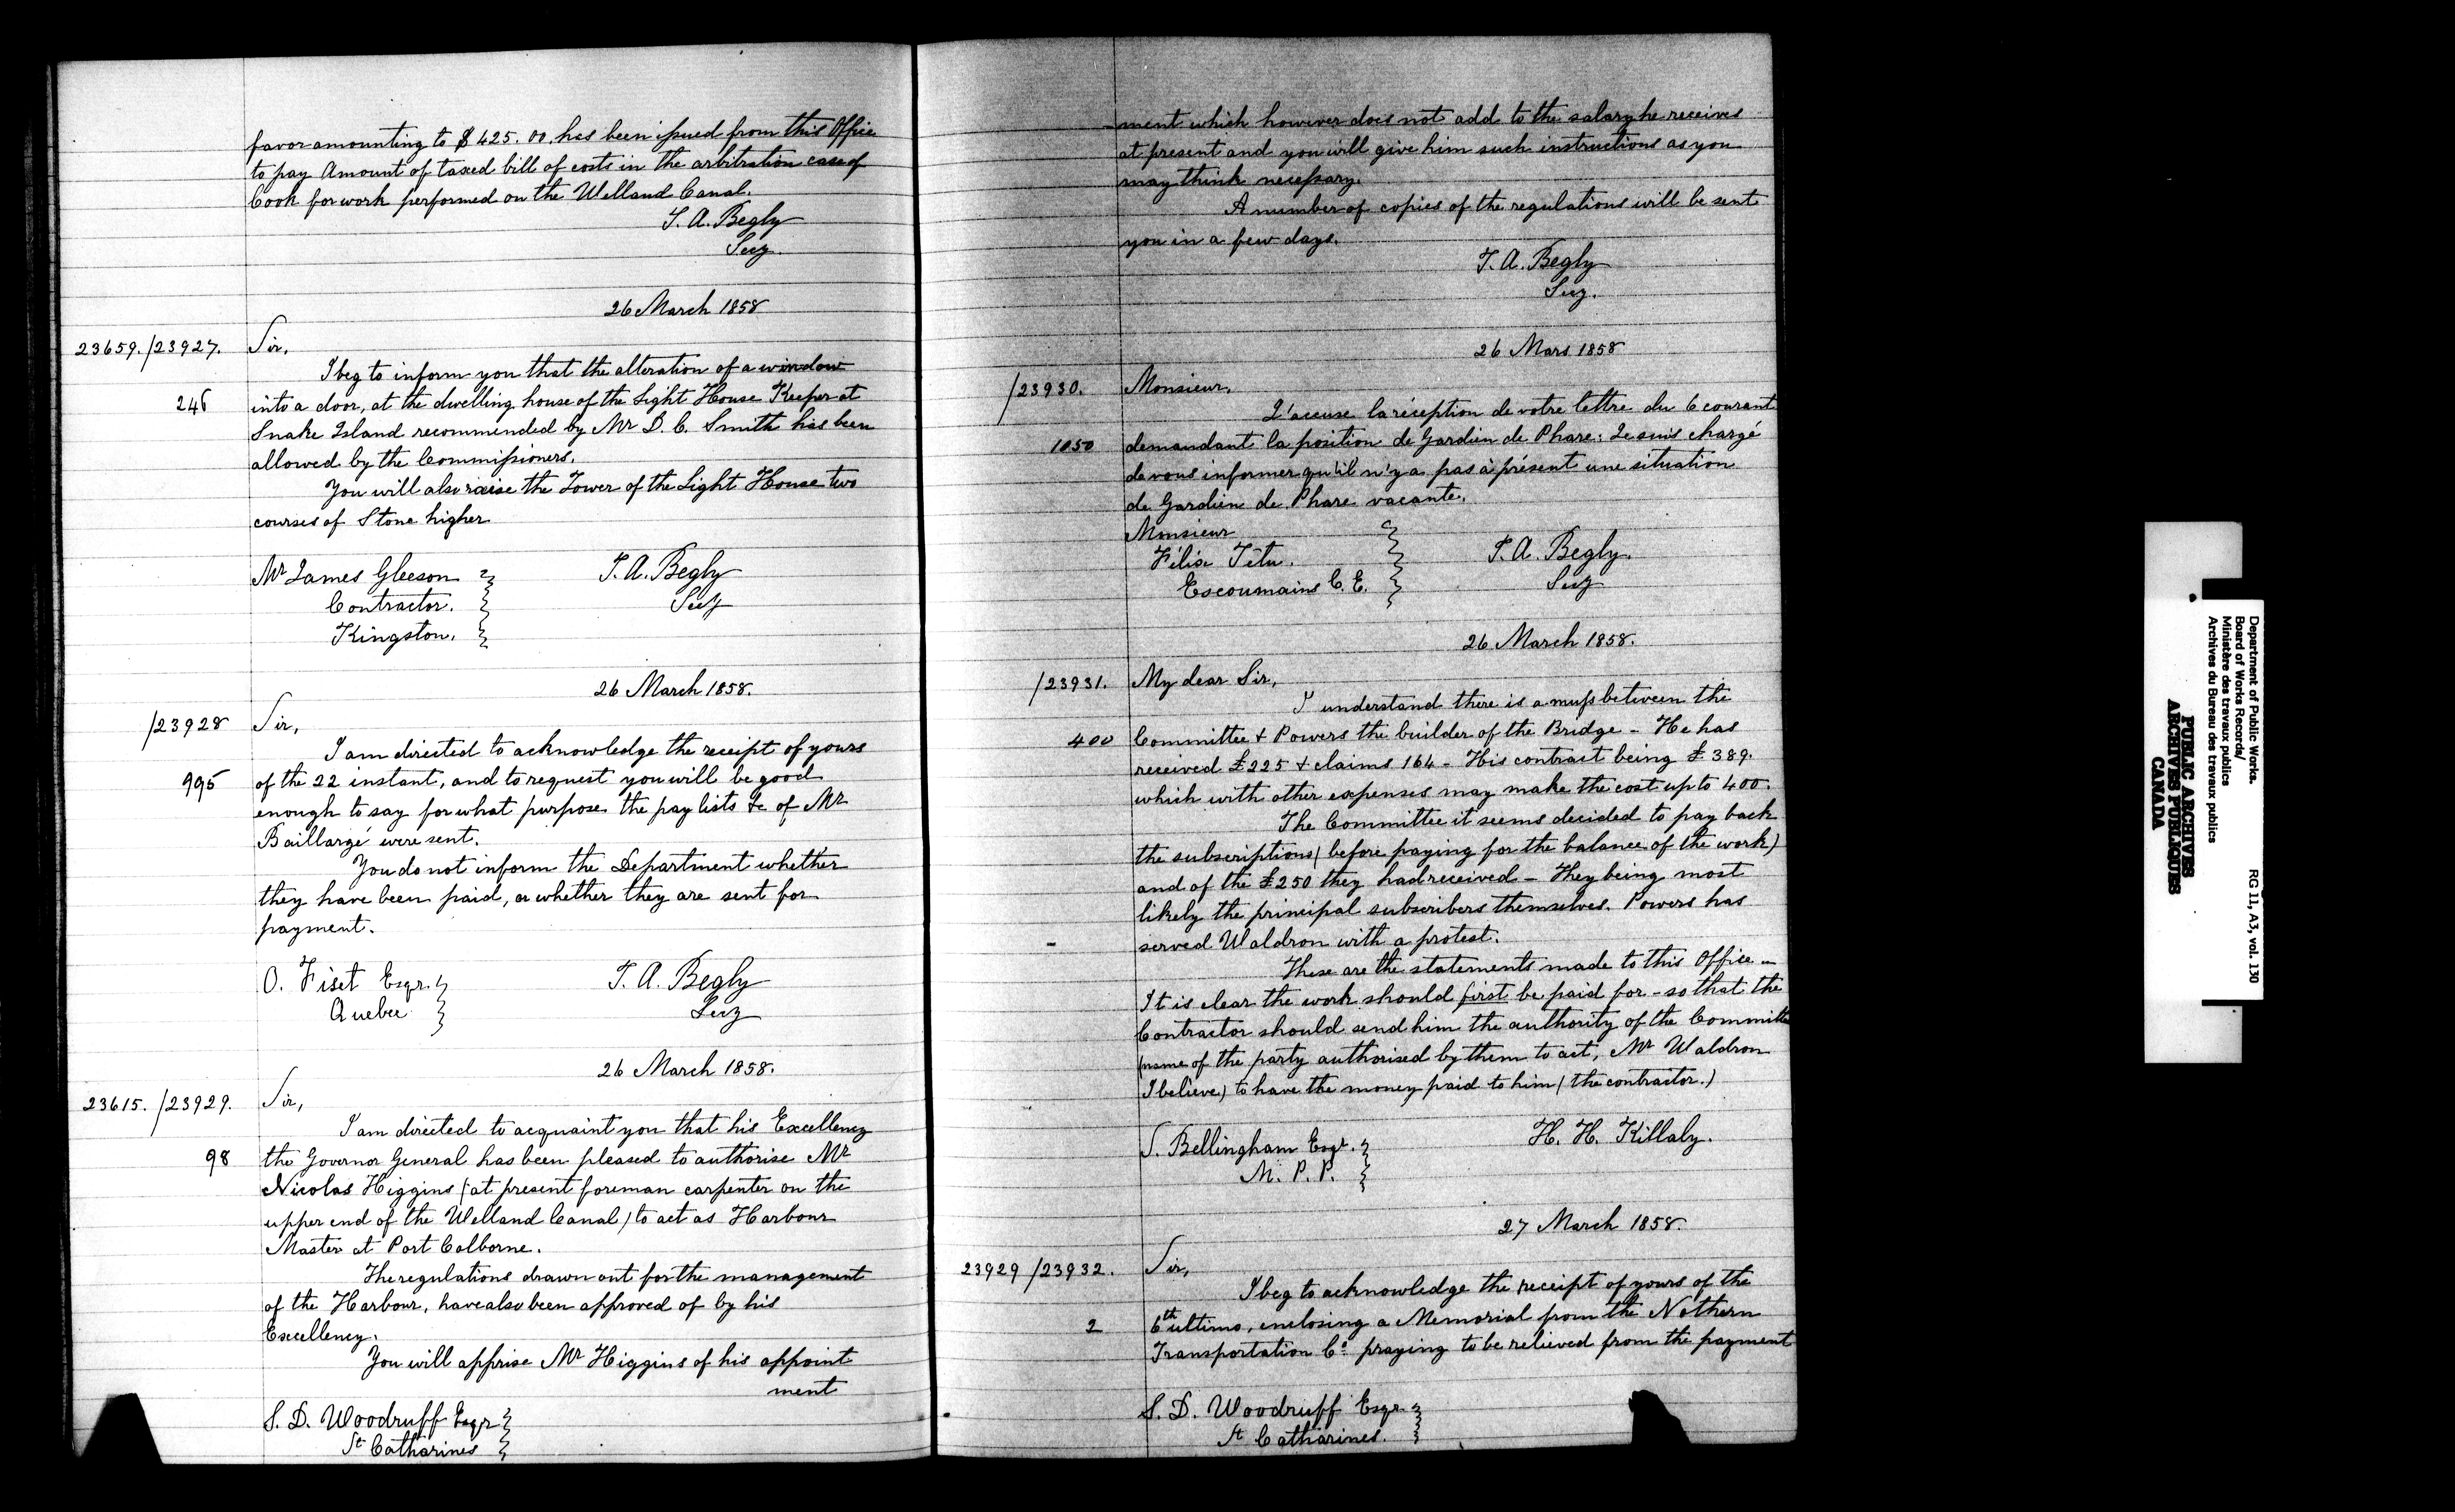 favor amounting to $425.00. has been issued from this Office
to pay Amount of taxed bill of costs in the arbitration case of
Cook for work performed on the Welland Canal.
T. A. Begly
Secy.
26 March 1858
23659./23927. Sir,
I beg to inform you that the alteration of a window
246 into a door, at the dwelling house of the Light House Keeper at
Snake Island recommended by Mr D. C. Smith has been
allowed by the Commissioners.
You will also raise the Tower of the Light House two
courses of Stone higher
Mr James Gleeson T. A. Begly
Contractor. Secy
Kingston.
26 March 1858.
/23928 Sir,
I am directed to acknowledge the receipt of yours
995 of the 22 instant, and to request you will be good
enough to say for what purpose the pay lists &c of Mr
Baillargé were sent.
You do not inform the Department whether
they have been paid, or whether they are sent for
payment.
O. Fiset Esqr. T. A. Begly
Quebec Secy
26 March 1858.
23615. /23929. Sir,
I am directed to acquaint you that his Excellency
98 the Governor General has been pleased to authorise Mr
Nicolas Higgins (at present foreman carpenter on the
upper end of the Welland Canal) to act as Harbour
Master at Port Colborne.
The regulations drawn out for the management
of the Harbour, have also been approved of by his
Excellency.
You will apprise Mr Higgins of his appoint
ment
S. D. Woodruff Esqr
St Catharines
-ment which however does not add to the salary he receives
at present and you will give him such instructions as you
may think necessary.
A number of copies of the regulations will be sent
you in a few days.
T. A. Begly
Secy.
26 Mars 1858
/23930. Monsieur,
J'accuse la réception de votre lettre du 6 courant
1050 demandant la position de Gardien de Phare: Je suis chargé
de vous informer qu'il n'y a pas à présent une situation
de Gardien de Phare vacante.
Monsieur
Félix Tétu. T. A. Begly.
Escoumains C. E. Secy
26 March 1858.
/23931. My dear Sir,
I understand there is a muss between the
400 Committee & Powers the builder of the Bridge - He has
received £225 & claims 164 - His contract being £389.
which with other expenses may make the cost up to 400.
The Committee it seems decided to pay back
the subscriptions (before paying for the balance of the work)
and of the £250 they had received - They being most
likely the principal subscribers themselves. Powers has
served Waldron with a protest.
These are the statements made to this Office -
It is clear the work should first be paid for - so that the
Contractor should send him the authority of the Committee
(name of the party authorised by them to act, Mr Waldron
I believe) to have the money paid to him (the contractor.)
S. Bellingham Esqr. H. H. Killaly.
M. P. P.
27 March 1858.
23929 /23932. Sir,
I beg to acknowledge the receipt of yours of the
2 6th ultimo, enclosing a Memorial from the Nothern
Transportation Co. praying to be relieved from the payment
S. D. Woodruff Esqr.
St Catharines.
Department of Public Works.
Board of Works Records/
Ministère des travaux publics
Archives du Bureau des travaux publics
RG 11, A3, vol. 130
PUBLIC ARCHIVES
ARCHIVES PUBLIQUES
CANADA